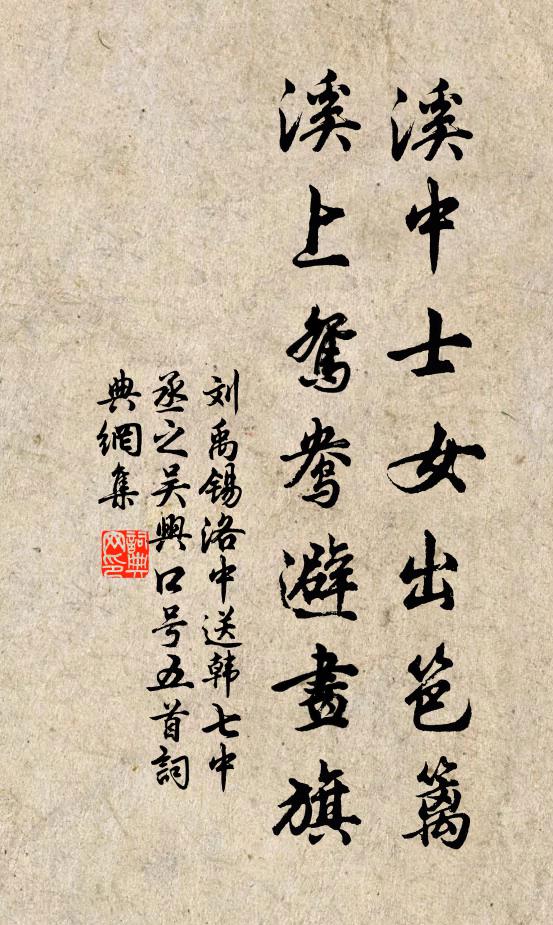 溪中士女出笆篱
溪上鸳鸯避畫旗
刘禹锡洛中送韩七中
丞之吴興口号五首詞
典網集
詞典网印